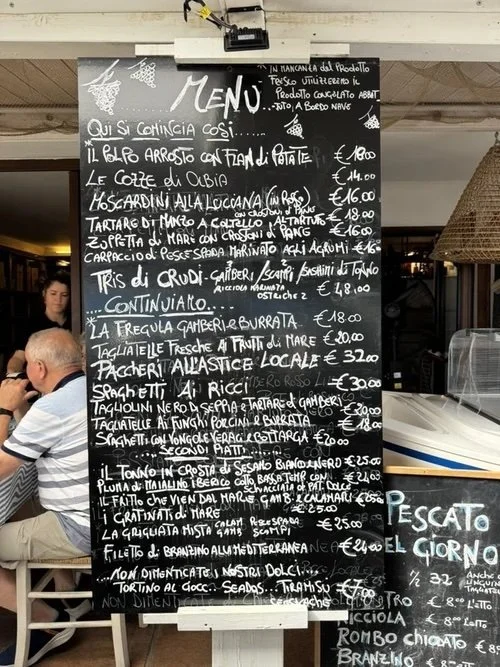 IN MANCANZA del PRODOTTO
FRESCO UTILIZZEREMO IL
PRODOTTO CONGELATO ABBAT
-TUTO, A BORDO NAVE
MENÙ
QUI SI COMINCIA COSÌ......
IL POLPO ARROSTO CON FLAN di PATATE €18.00
LE COZZE di OLBIA €14.00
MOSCARDINI ALLA LUCIANA (IN ROSSO) €16.00
CON CROSTONI di PANE
TARTARE DI MANZO A COLTELLO AL TARTUFO €18.00
ZUPPETTA di MARE CON CROSTONI di PANE €16.00
CARPACCIO di PESCE SPADA MARINATO AGLI AGRUMI €16
TRIS di CRUDI - GAMBERI / SCAMPI / SASHIMI di TONNO
RICCIOLA MARINATA
OSTRICHE 2 €48,00
CONTINUIAMO....
LA FREGULA GAMBERI e BURRATA €18.00
TAGLIATELLE FRESCHE AI FRUTTI di MARE €20,00
PACCHERI ALL'ASTICE LOCALE €32.00
SPAGHETTI AI RICCI €30.00
TAGLIOLINI NERO DI SEPPIA e TARTARE di GAMBERI €20.00
TAGLIATELLE AI FUNGHI PORCINI e BURRATA €18.00
SPAGHETTI CON VONGOLE VERACI e BOTTARGA €20.00
....SECONDI PIATTI....
IL TONNO IN CROSTA di SESAMO BIANCO e NERO €25.00
PLUMA di MAIALINO IBERICO COTTO BASSA TEMP CON
IL FRITTO CHE VIEN DAL MARE GAMB. e CALAMARI €25.00
I GRATINATI di MARE €25.00
LA GRIGLIATA MISTA CALAM PESCESPADA GAMB SCAMPI €25.00
FILETTO di BRANZINO ALLA MEDITERRANEA €24.00
...NON DIMENTICATE I NOSTRI DOLCI....
TORTINO AL CIOCC.. SEADAS.. TIRAMISU €7.00
PESCATO
EL GIORNO
½ 32
ANCHE
RICCIOLA € 8,00 L'ETTO
ROMBO CHIODATO € 8
BRANZINO